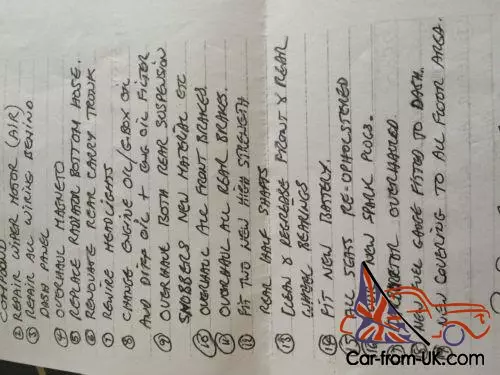 COMPOUND
② REPAIR WIPER MOTOR (AIR)
③ REPAIR ALL WIRING BEHIND
DASH PANEL
④ OVERHAUL MAGNETO
⑤ REPLACE RADIATOR BOTTOM HOSE.
⑥ RENOVATE REAR CARRY TRUNK
⑦ REWIRE HEADLIGHTS
⑧ CHANGE ENGINE OIL/G.BOX OIL
AND DIFF OIL + ENG OIL FILTER
⑨ OVERHAUL BOTH REAR SUSPENSION
SNUBBERS NEW MATERIAL ETC
⑩ OVERHAUL ALL FRONT BRAKES
⑪ OVERHAUL ALL REAR BRAKES.
⑫ FIT TWO NEW HIGH STRENGTH
REAR HALF SHAFTS
⑬ CLEAN & REGREASE FRONT & REAR
WHEEL BEARINGS
⑭ FIT NEW BATTERY.
⑮ ALL SEATS RE-UPHOLSTERED
NEW SPARK PLUGS.
OVERHAULED.
NEW FUEL GAUGE FITTED TO DASH.
NEW COVERING TO ALL FLOOR AREA.
Car-from-UK.com